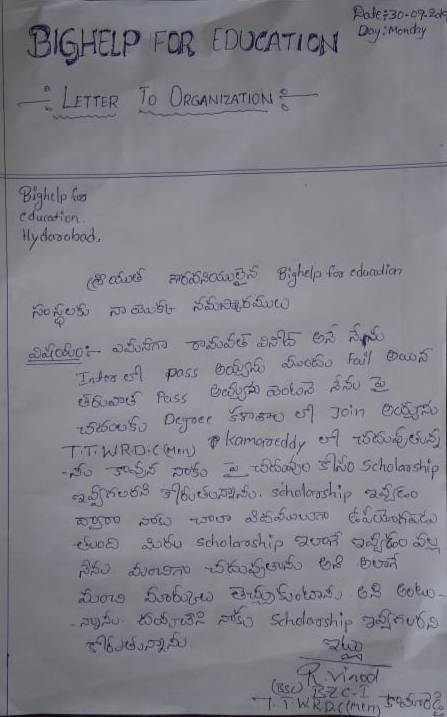 Date: 30-09-20
Day: Monday
BIGHELP FOR EDUCATION
LETTER TO ORGANIZATION
Bighelp for
education.
Hyderabad,
శ్రీయుత గౌరవనీయులైన Bighelp for education
సంస్థలకు నా యొక్క నమస్కారములు
విషయం:- ఏమనగా రామవత్ వినోద్ అనే నేను
Inter లో pass అయ్యాను ముందు Fail అయిన
తరువాత Pass అయ్యాను వెంటనే నేను పై
చదువులకు Degree కళాశాల లో Join అయ్యాను
T.T.W.R.D.C(Men) Kamareddy లో చదువుతున్న
-ను కావున నాకు పై చదువుల కోసం Scholarship
ఇవ్వగలరని కోరుతున్నాను. Scholarship ఇవ్వడం
ద్వారా నాకు చాలా విధములుగా ఉపయోగపడు
తుంది మీరు Scholarship ఇలాగే ఇవ్వడం వల్ల
నేను మంచిగా చదువుతాను అని అలాగే
మంచి మార్కులు తెచ్చుకుంటాను అని అంటు-
-న్నాను. దయచేసి నాకు Scholarship ఇవ్వగలరని
కోరుతున్నాను.
ఇట్లు
R. Vinod
(BSc) BZC-I
T.T.W.R.D.C(Men) కామారెడ్డి